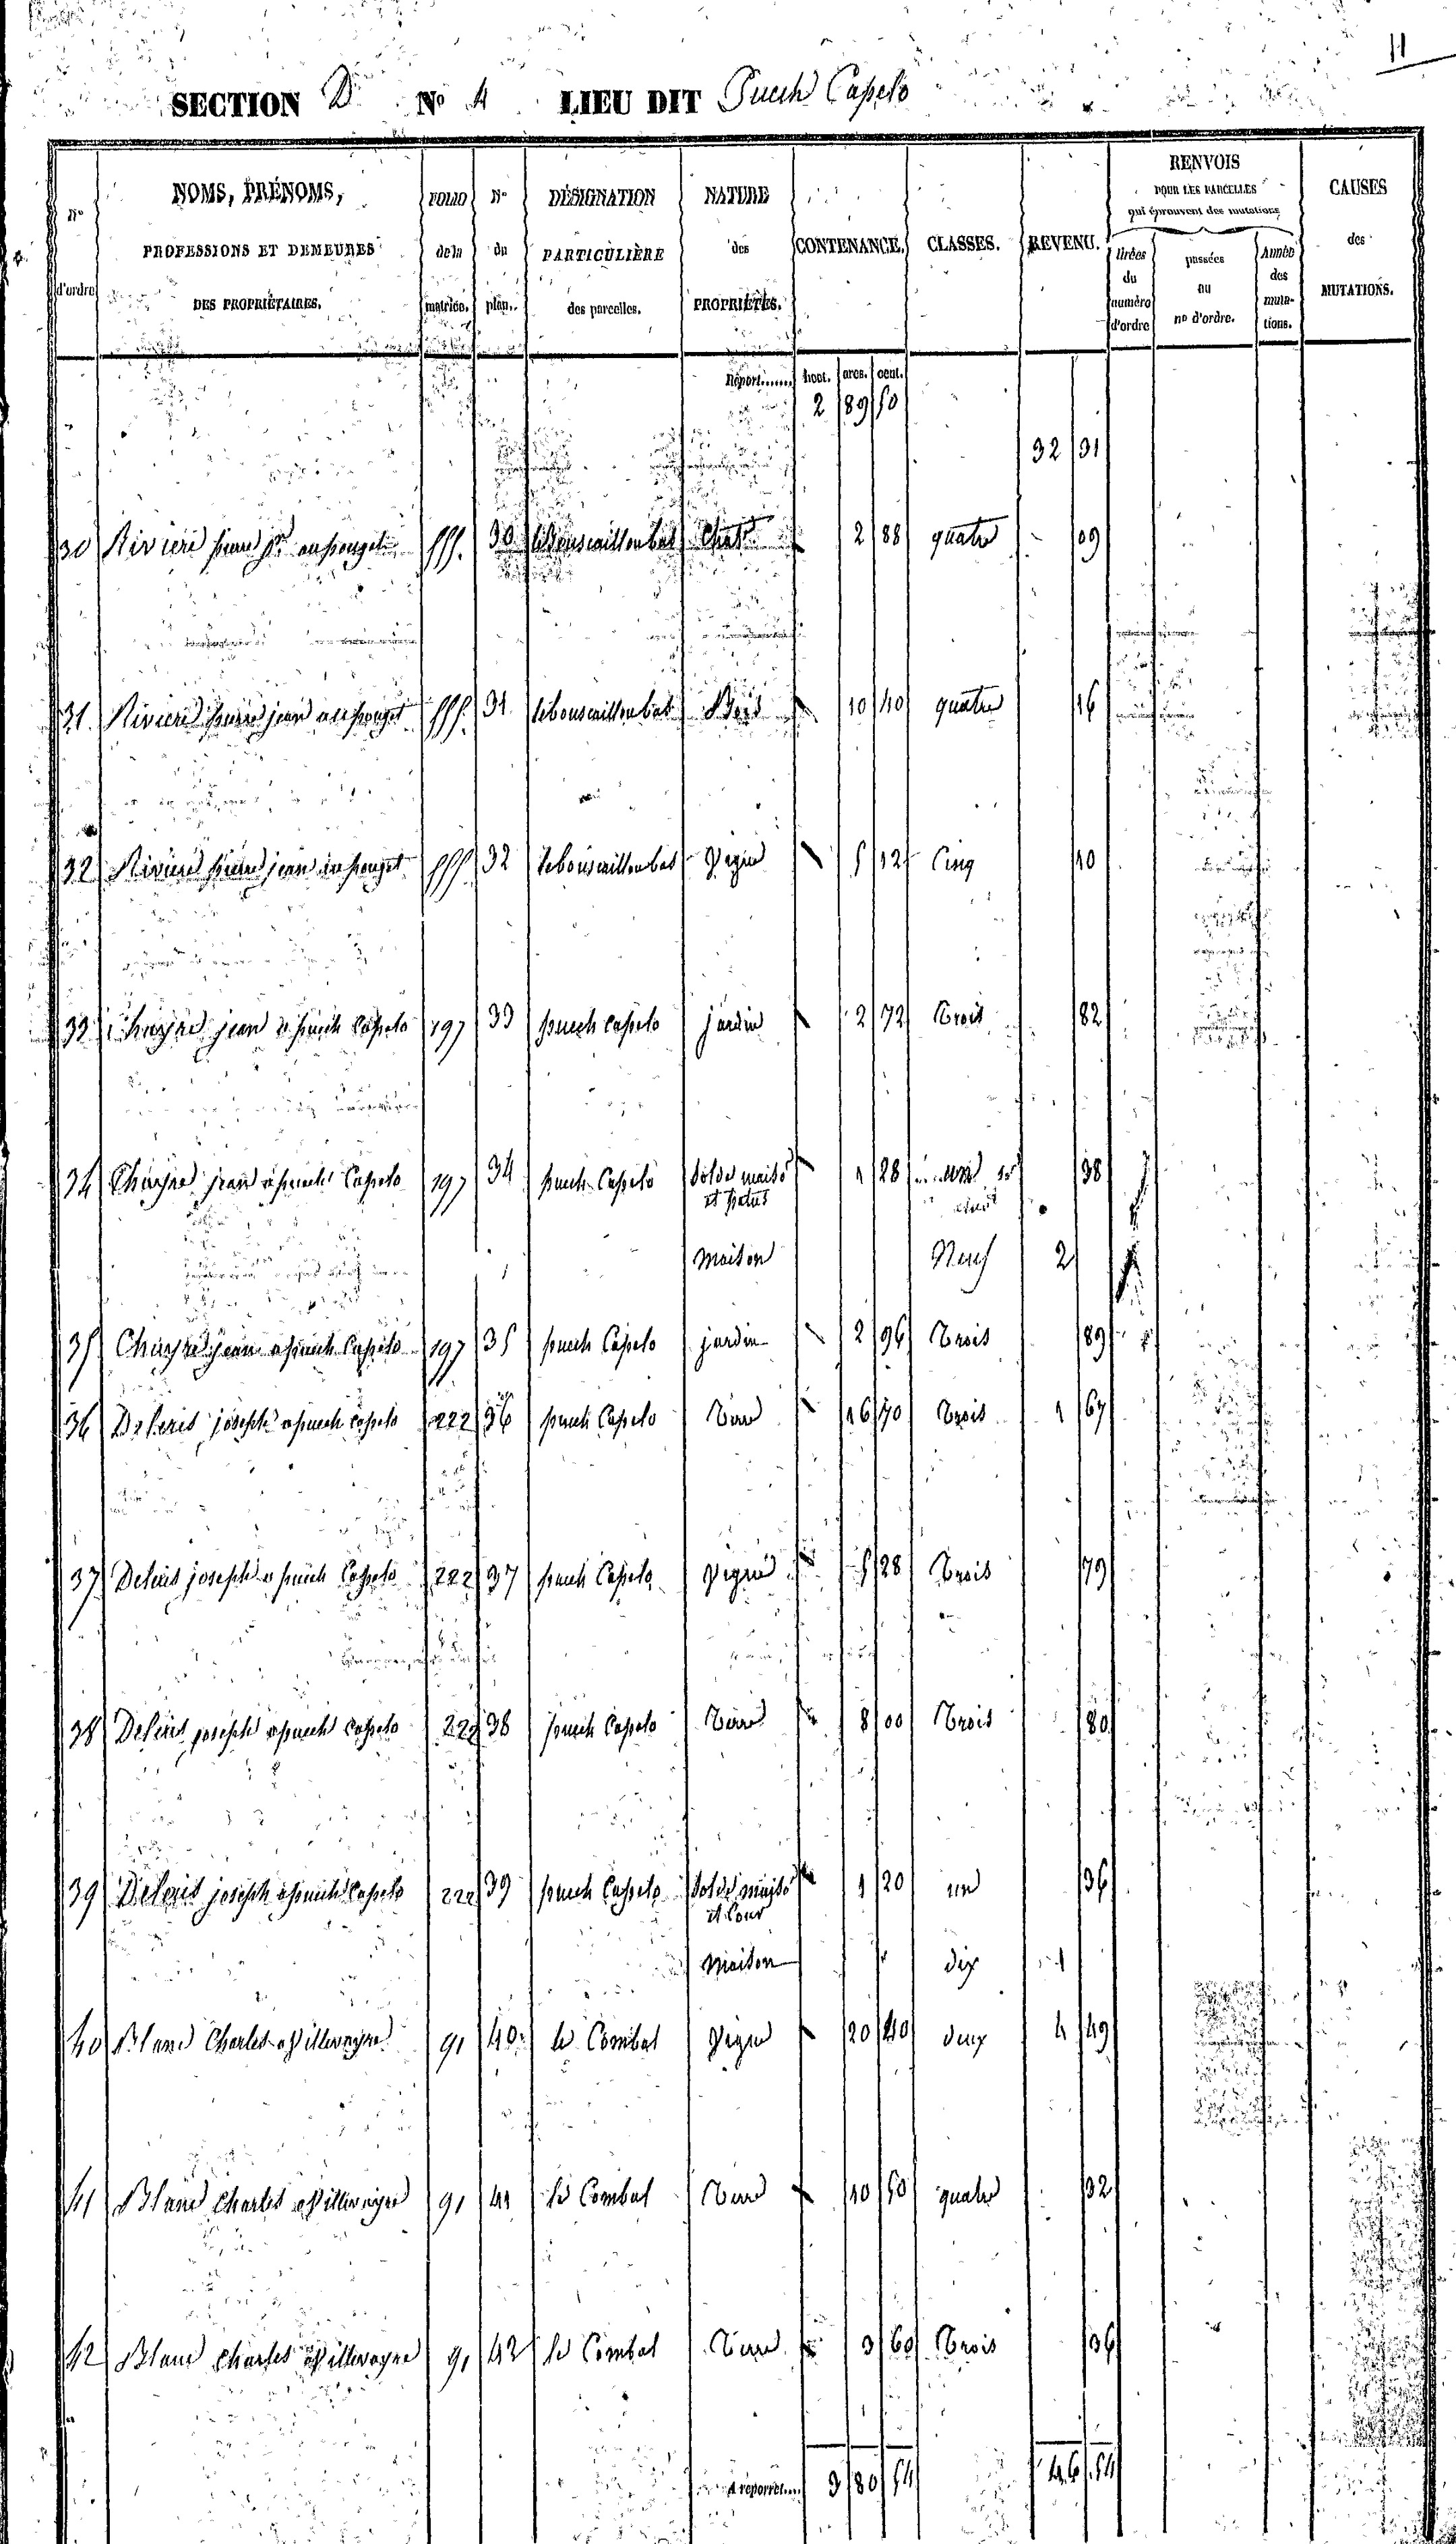 11
SECTION D No 4 LIEU DIT Puech Capelo
No d'ordre
NOMS, PRÉNOMS, PROFESSIONS ET DEMEURES DES PROPRIÉTAIRES.
FOLIO de la matrice.
No du plan.
DÉSIGNATION PARTICULIÈRE des parcelles.
NATURE des PROPRIÉTÉS.
CONTENANCE.
CLASSES.
REVENU.
RENVOIS POUR LES PARCELLES qui éprouvent des mutations
tirées du numéro d'ordre
passées au no d'ordre.
Année des muta-tions.
CAUSES des MUTATIONS.
Report....... hect. ares. cent.
2 89 50
32 31
30 Riviere pierre jn 555. 30 2 88 quatre 09
31 Riviere pierre jean 555. 31 Bois 10 40 quatre 16
32 Riviere pierre jean 555 32 Vigne 5 12 Cinq 10
33 jean a puech Capelo 197 33 puech Capelo jardin 2 72 Trois 82
34 jean a puech Capelo 197 34 puech Capelo Sol de maiso 1 28 38
et patus
maison Neuf 2
35 jean a puech Capelo 197 35 puech Capelo jardin 2 96 Trois 89
36 Deleris joseph a puech Capelo 222 36 puech Capelo Terre 16 70 Trois 1 67
37 Deleris joseph a puech Capelo 222 37 puech Capelo Vigne 5 28 Trois 79
38 Deleris joseph a puech Capelo 222 38 puech Capelo Terre 8 00 Trois 80
39 Deleris joseph a puech Capelo 222 39 puech Capelo Sol de maiso 1 20 un 36
et Cour
maison dix 1
40 Blanc Charles a Villevayre 91 40 le Combal Vigne 20 40 deux 4 49
41 Blanc Charles a Villevayre 91 41 le Combal Terre 10 50 quatre 32
42 Blanc Charles a Villevayre 91 42 le Combal Terre 3 60 Trois 36
A reporter.... 3 80 54 46 54